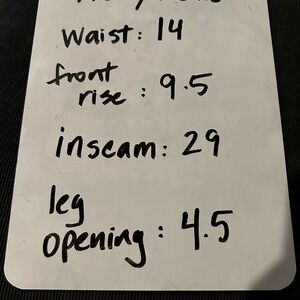 Waist: 14
front
rise : 9.5
inseam: 29
leg
opening : 4.5